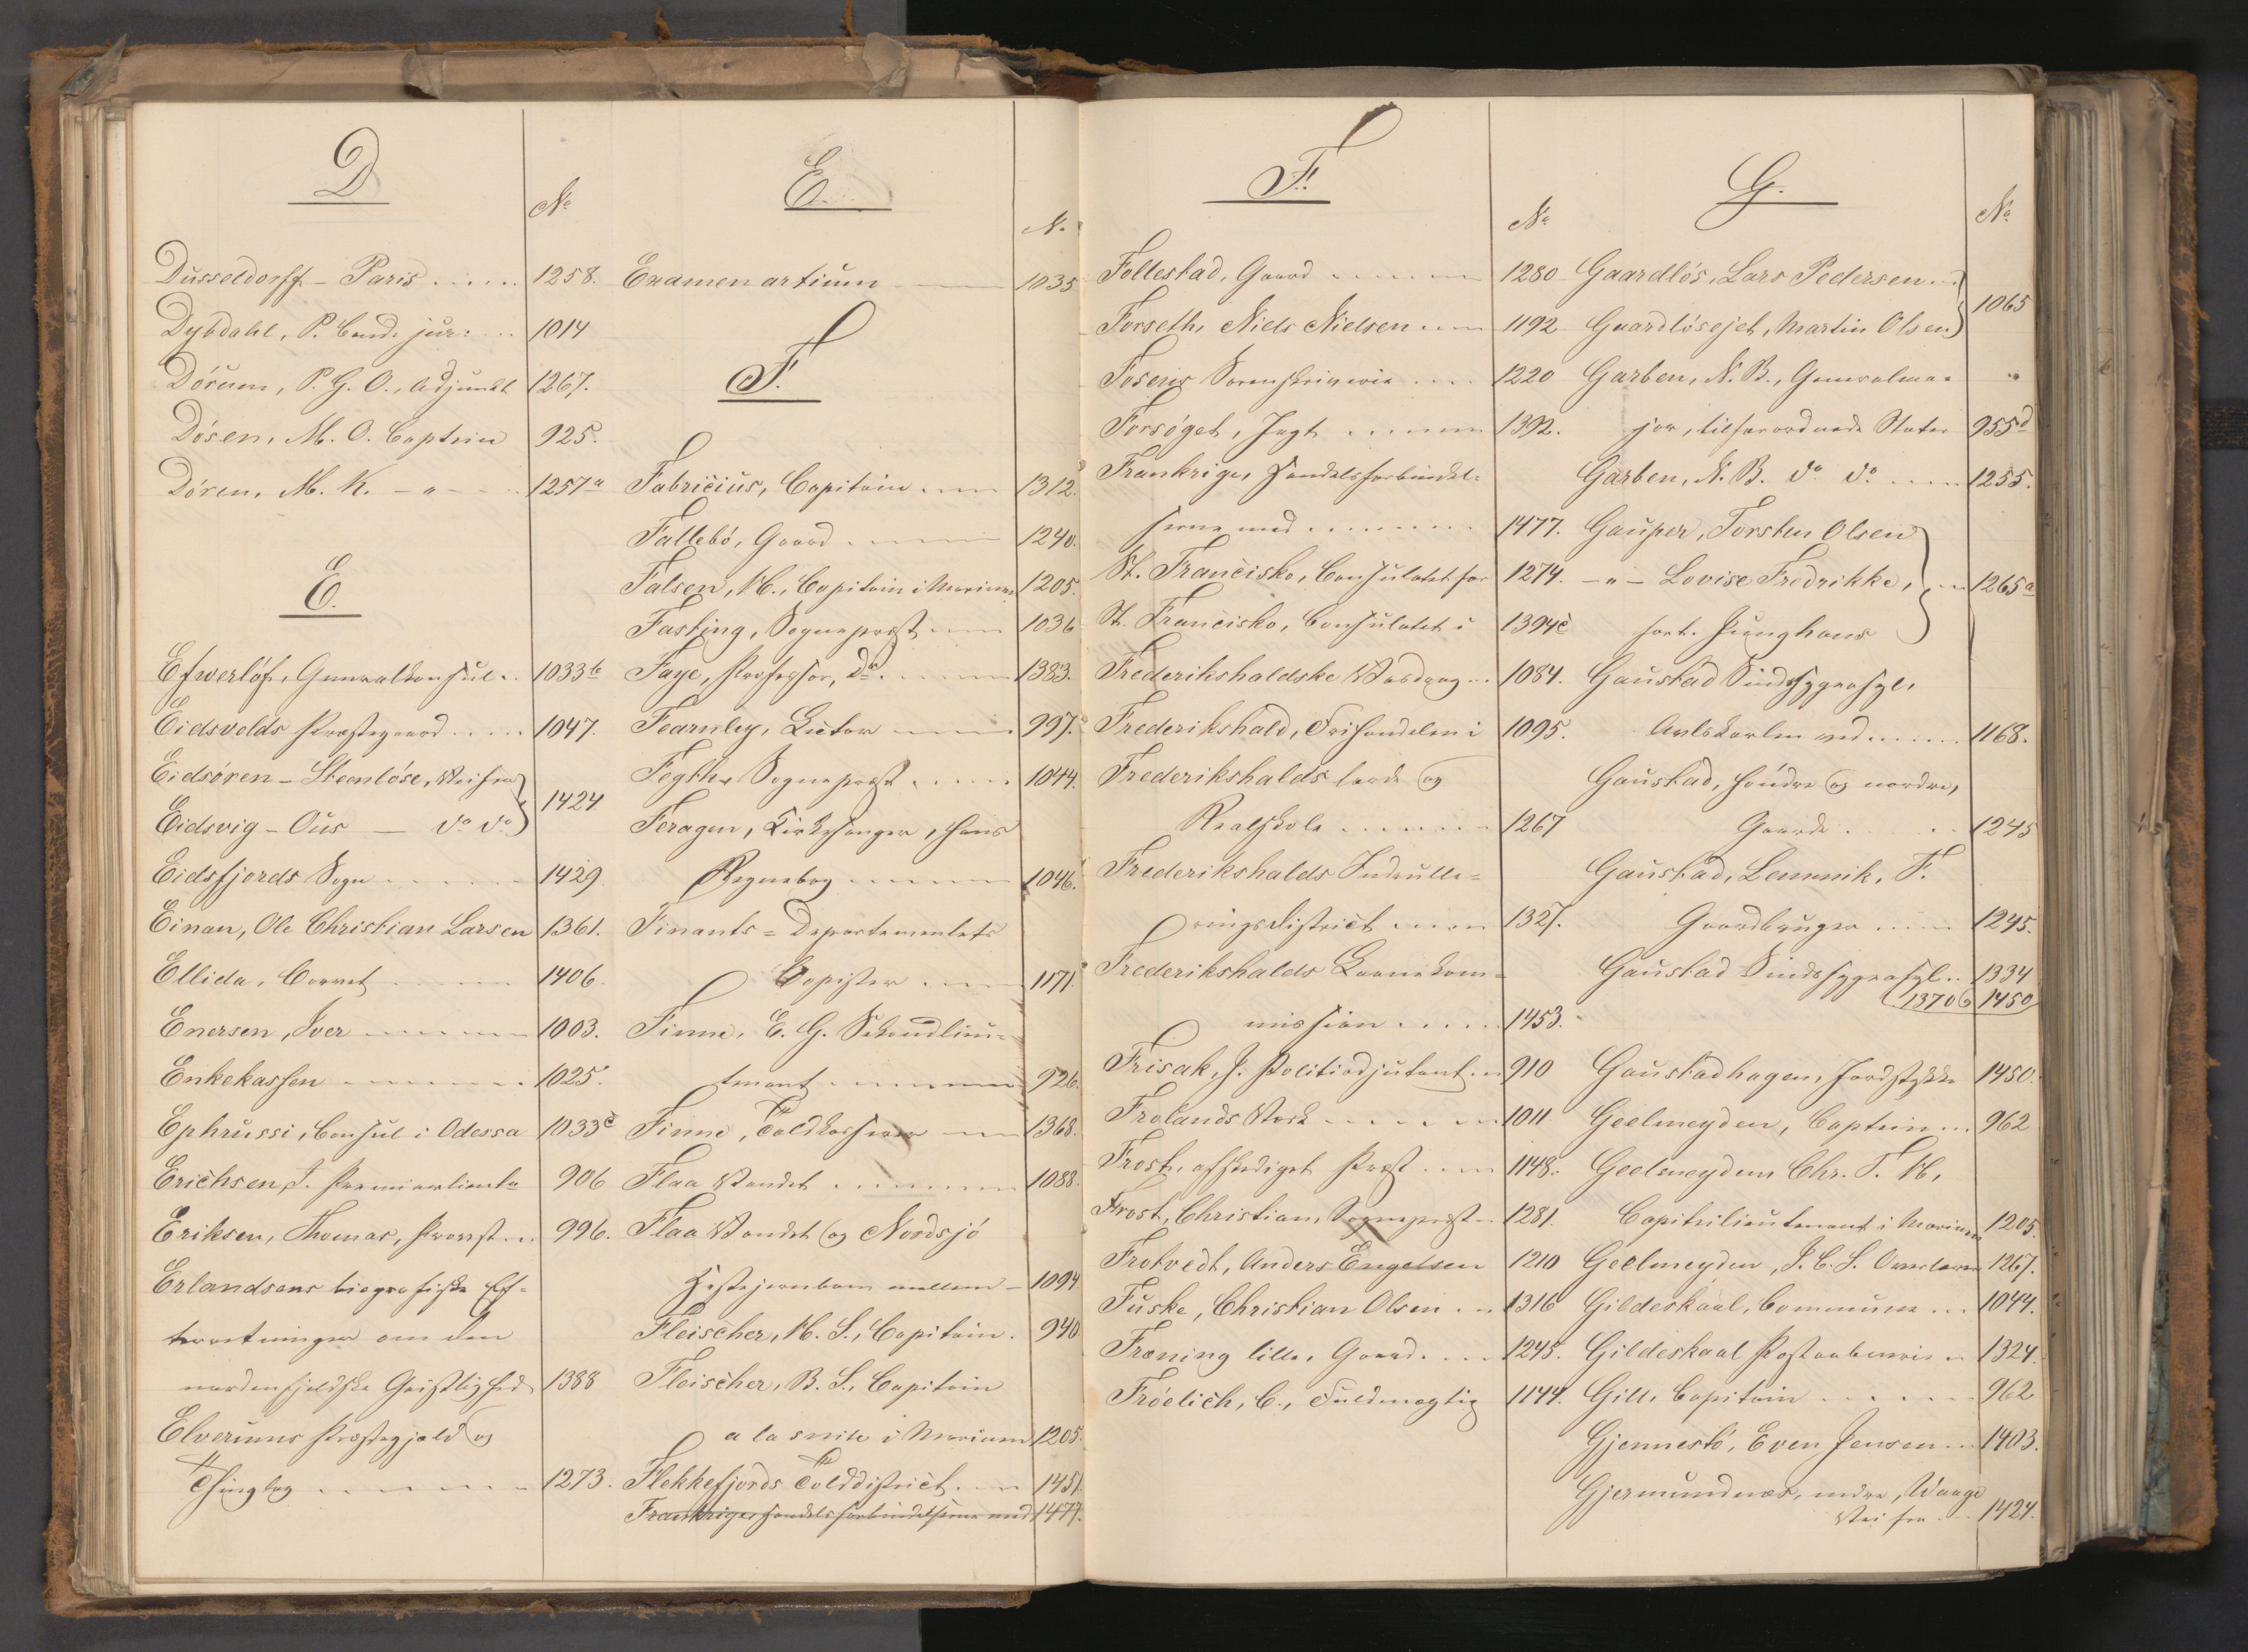 D
No
Dusseldorff - Paris ..... 1258.
Dybdahl, P. Cand. jur: .. 1014
Dörum, P. G. O., Adjunkt 1267.
Dösen, M. O. Captein 925.
Dören, M. K. - " - .. 1257a
E.
Efwerlöf, Generalkonsul .. 1033b
Eidsvolds Præstegaard ..... 1047.
Eidsören - Steenlöse, Vei fra
Eidsvig - Ous - do do } 1424
Eidsfjords Sogn ..... 1429
Einan, Ole Christian Larsen 1361.
Ellida, Corvet ..... 1406.
Enersen, Iver ..... 1003.
Enkekassen ..... 1025.
Ephrussi, Consul i Odessa 1033c
Erichsen, P. Premierlieutn 906
Eriksen, Thomas, Provst ... 996.
Erlandsens biografiske Ef=
terretninger om den
nordenfjeldske Geistlighed 1388
Elverums Præstegjeld og
Thinglag ..... 1273.
E.
No
Examen artium ..... 1035
F.
Fabricius, Capitain .... 1312.
Fallebö, Gaard ..... 1240.
Falsen, H., Capitain i Marinen 1205.
Fasting, Sogneprest .... 1036
Faye, Professor, Dr. ..... 1383.
Fearnley, Lector ..... 997.
Fegth, Sogneprest ..... 1044.
Feragen, Kirkesanger, hans
Regnebog ..... 1046.
Finants=Departementets
Copister ..... 1171.
Finne, E. G. Sekondlieu=
tenant ..... 926.
Finne, Toldkasserer .... 1368.
Flaa Vandet ..... 1088.
Flaa Vandet og Nordsjö
Hestejernbane mellem - 1094
Fleischer, H. S., Capitain . 940
Fleischer, B. S., Capitain
a la suite i Marinen 1205.
Flekkefjords Tolddistrict ... 1451.
Frankrige, Handelsforbindelserne med 1477.
F.
No
Follestad, Gaard ..... 1280
Forseth, Niels Nielsen .... 1192
Fosens Sorenskriverie .... 1220
Forsöget, Jagt ..... 1392.
Frankrige, Handelsforbindel=
serne med ..... 1477.
St. Francisko, Consulatet for 1274.
St. Francisko, Consulatet i 1394c
Frederikshaldske Vasdrag .. 1084.
Frederikshald, Frihandelen i 1095.
Frederikshalds lærde og
Realskole ..... 1267
Frederikshalds Indrulle=
ringsdistrict .... 1327.
Frederikshalds Havnekom=
mission ..... 1453.
Frisak, J. Politiadjutant .. 910
Frolands Værk ..... 1011
Frost, afskediget Præst .... 1148.
Frost, Christian, Sogneprest .. 1281.
Frotvedt, Anders Engelsen 1210
Fuske, Christian Olsen ... 1316
Fræning lille, Gaard .... 1245.
Fröelich, C., Fuldmægtig 1144.
G.
No
Gaardlös, Lars Pedersen ..
Gaardlösejet, Martin Olsen } 1065
Garben, N. B., Generalma=
jor, tilforordnede Stater 955d
Garben, N. B. do do .... 1255.
Gauper, Torsten Olsen
- " - Lovise Fredrikke,
født Junghans } 1265a
Gaustad Sindssygeasyl,
Avlskarlen ved ..... 1168.
Gaustad, söndre og nordre,
Gaarde ..... 1245
Gaustad, Lemmik, F.
Gaardbruger ..... 1245.
Gaustad Sindssygeasyl .. 1334
(1370b 1450
Gaustadhagen, Jordstykke 1450.
Geelmeyden, Captein ... 962
Geelmeyden Chr. F. H.,
Capiteilieutenant i Marinen 1205.
Geelmeyden, J. C. S. Overlærer 1267.
Gildeskaal, Commune ... 1044.
Gildeskaal Postaabnerie .. 1324.
Gill, Capitain ..... 962
Gjennestö, Even Jensen ... 1403.
Gjermundnæs, nedre, Waage
Vei fra ... 1424.